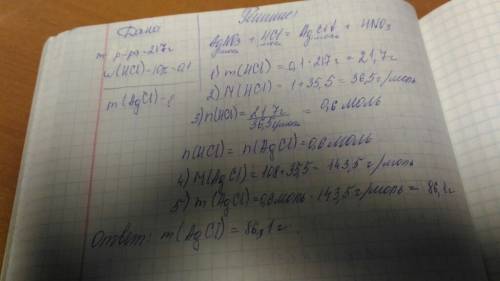 Дано
m р-ра-217г
ω(HCl)-10%-0,1
m(AgCl)-?
Решение:
AgNO3 + HCl = AgCl↓ + HNO3
1) m(HCl) = 0,1 · 217г = 21,7г
2) M(HCl) = 1+35,5 = 36,5 г/моль
3) n(HCl) = 21,7г / 36,5 г/моль = 0,6 моль
n(HCl) = n(AgCl) = 0,6 моль
4) M(AgCl) = 108+35,5 = 143,5 г/моль
5) m(AgCl) = 0,6 моль · 143,5 г/моль = 86,1г
Ответ: m(AgCl) = 86,1г.